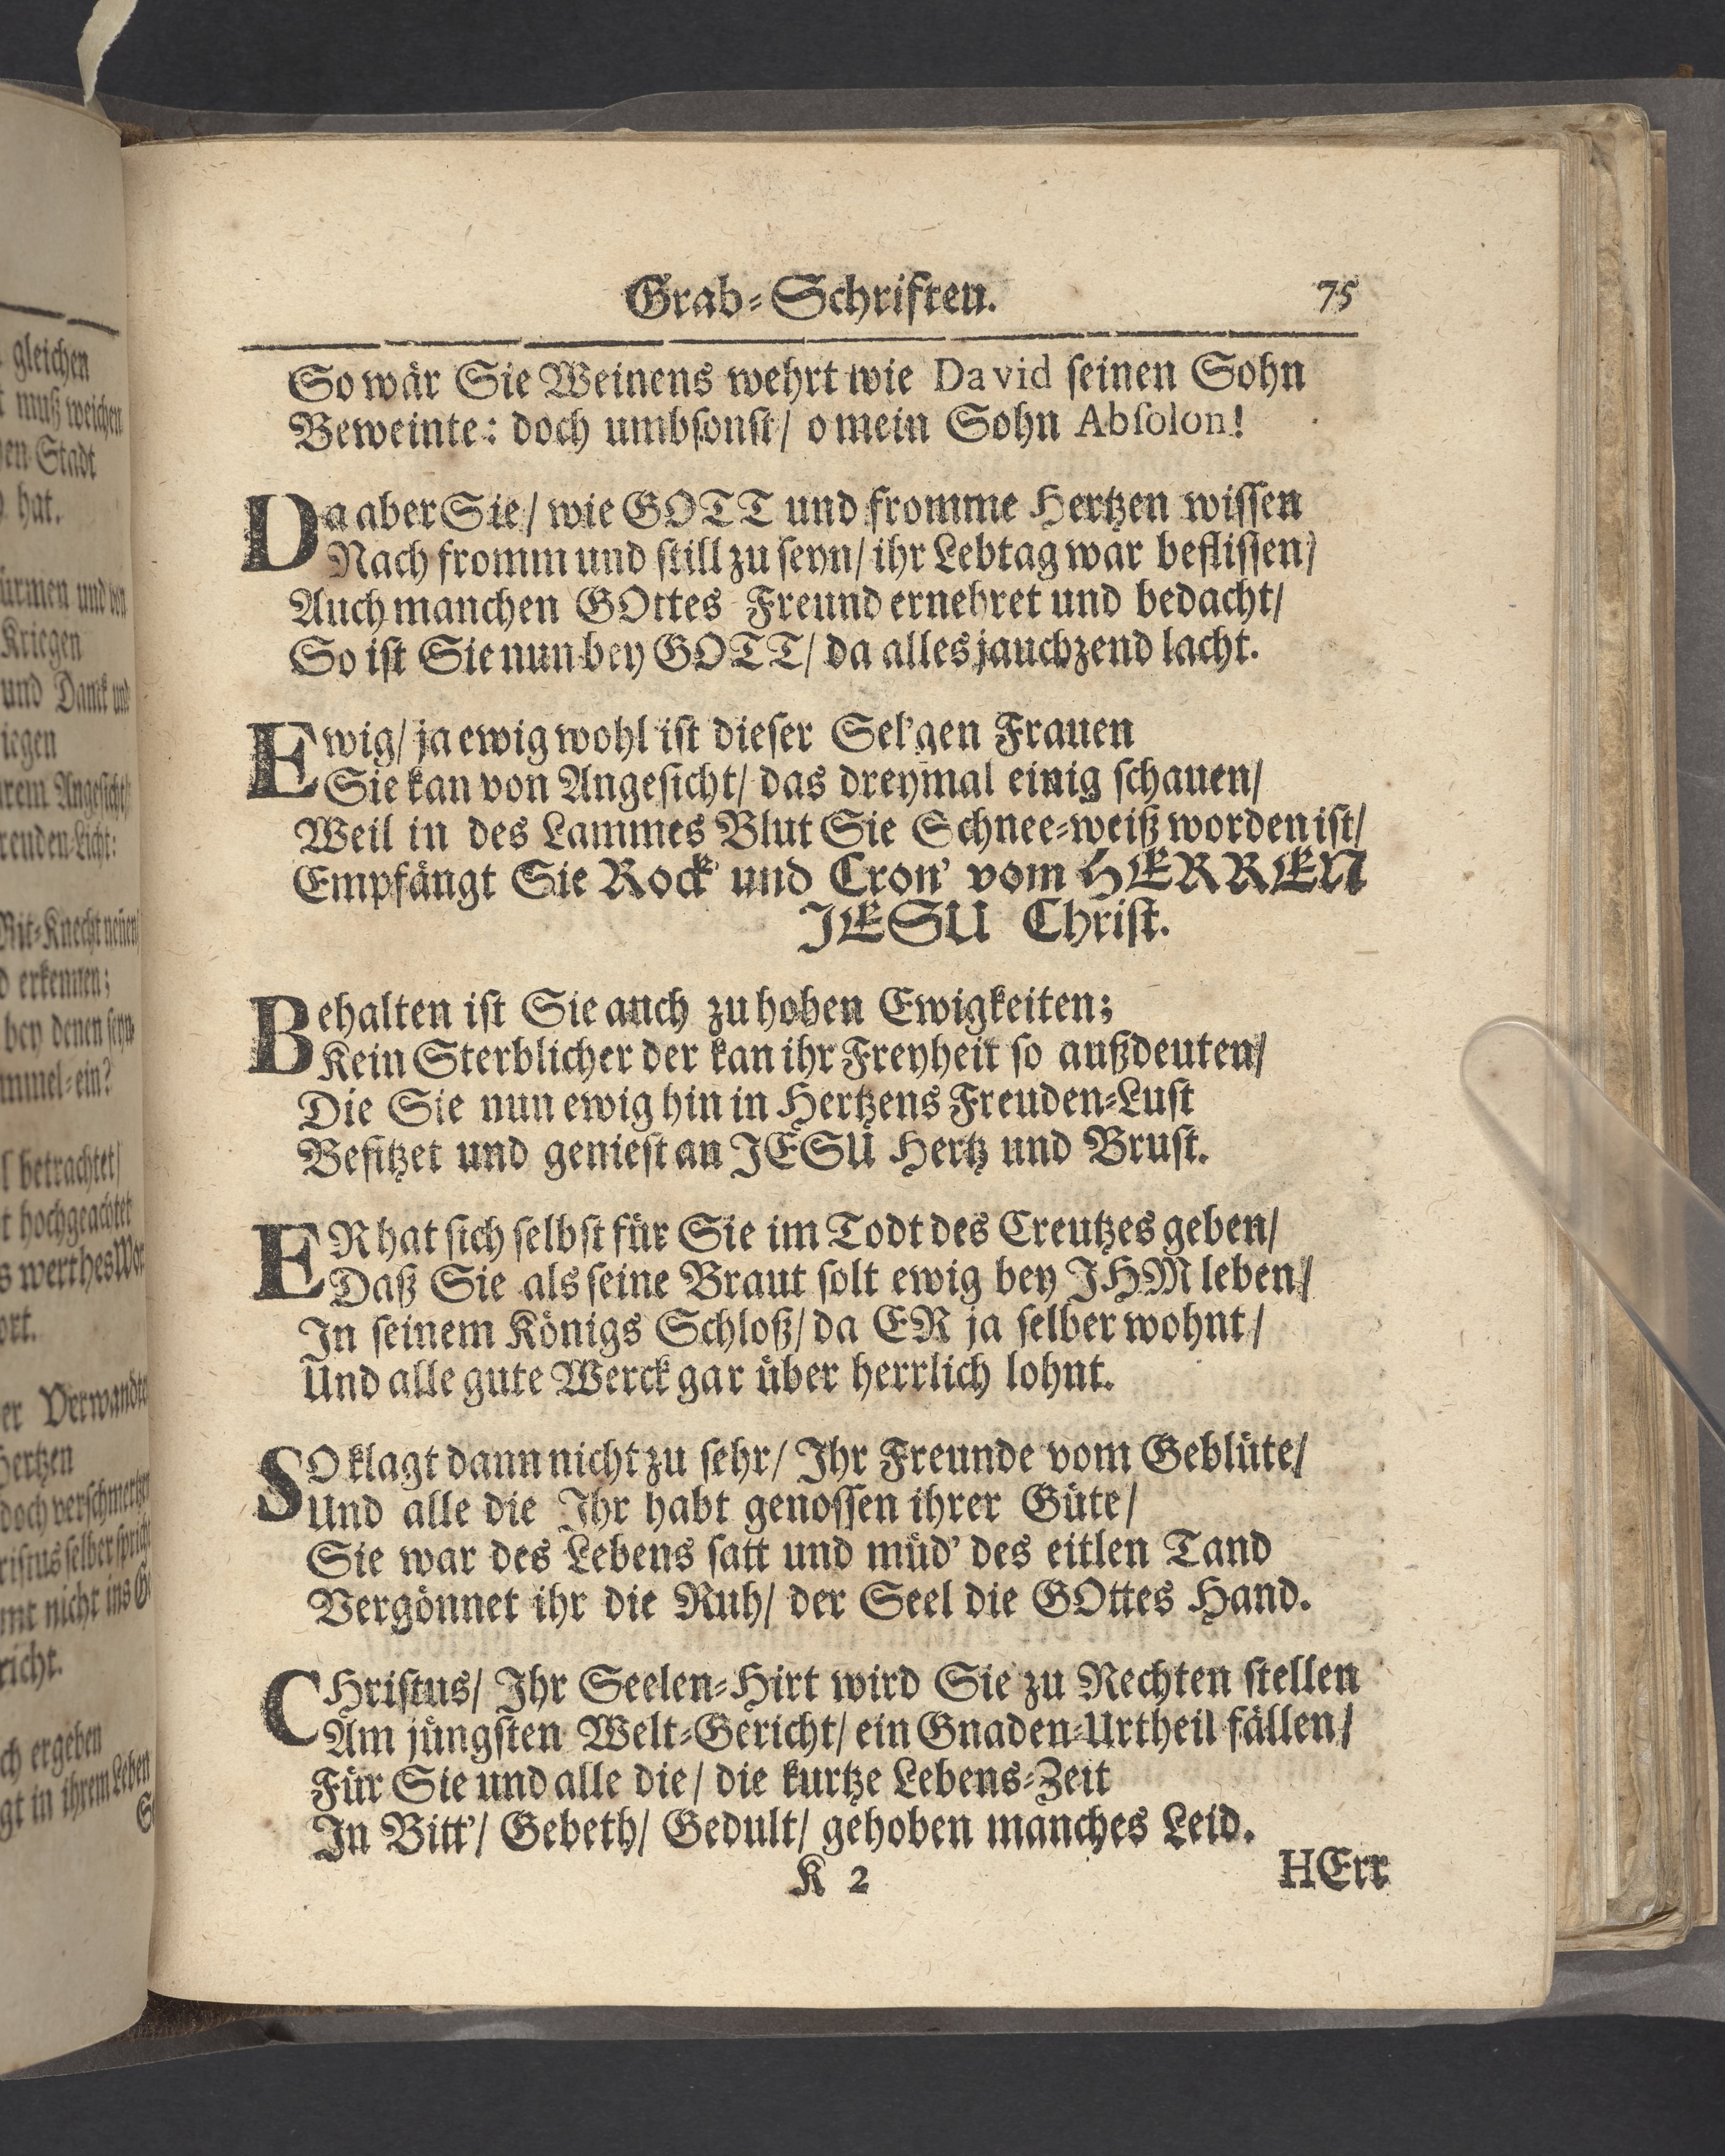 gleichen
muß weichen
Stadt
hat.
und
Kriegen
und Danck und
Angesicht
Licht:
Mit-Knecht
erkennen;
bey denen seyn
ein?
betrachtet/
hochgeachtet
werthes
Verwandte
Hertzen
doch
selber spricht
nicht ins
ergeben
in ihrem Leben
Grab-Schrifften. 75
So wär Sie Weinens wehrt wie David seinen Sohn
Beweinte: doch umbsonst/ o mein Sohn Absolon!
Da aber Sie/ wie GOTT und fromme Hertzen wissen
Nach fromm und still zu seyn/ ihr Lebtag war beflissen/
Auch manchen GOttes Freund ernehret und bedacht/
So ist Sie nun bey GOTT/ da alles jauchzend lacht.
Ewig/ ja ewig wohl ist dieser Sel'gen Frauen
Sie kan von Angesicht/ das dreymal einig schauen/
Weil in des Lammes Blut Sie Schnee-weiß worden ist/
Empfängt Sie Rock und Cron' vom HERREN
JESU Christ.
Behalten ist Sie auch zu hohen Ewigkeiten;
Kein Sterblicher der kan ihr Freyheit so außdeuten/
Die Sie nun ewig hin in Hertzens Freuden-Lust
Besitzet und geniest an JESU Hertz und Brust.
ER hat sich selbst für Sie im Todt des Creutzes geben/
Daß Sie als seine Braut solt ewig bey JHM leben/
In seinem Königs Schloß/ da ER ja selber wohnt/
Und alle gute Werck gar über herrlich lohnt.
SO klagt dann nicht zu sehr/ Ihr Freunde vom Geblüte/
Und alle die Ihr habt genossen ihrer Güte/
Sie war des Lebens satt und müd' des eitlen Tand
Vergönnet ihr die Ruh/ der Seel die GOttes Hand.
CHristus/ Ihr Seelen-Hirt wird Sie zu Rechten stellen
Am jüngsten Welt-Gericht/ ein Gnaden-Urtheil fällen/
Für Sie und alle die/ die kurtze Lebens-Zeit
In Bitt'/ Gebeth/ Gedult/ gehoben manches Leid.
K 2 HErr